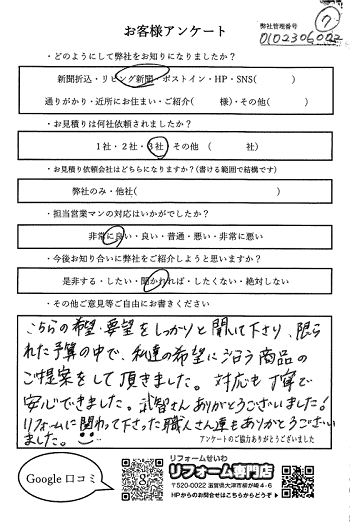 ⑦
お客様アンケート
弊社管理番号
0102306022
・どのようにして弊社をお知りになりましたか？
新聞折込・リビング新聞・ポストイン・HP・SNS(　　　)
通りがかり・近所にお住まい・ご紹介(　　　様)・その他(　　　)
・お見積りは何社依頼されましたか？
1社・2社・3社・その他 (　　　社)
・お見積り依頼会社はどちらになりますか？(書ける範囲で結構です)
弊社のみ・他社(　　　)
・担当営業マンの対応はいかがでしたか？
非常に良い・良い・普通・悪い・非常に悪い
・今後お知り合いに弊社をご紹介しようと思いますか？
是非する・したい・聞かれれば・したくない・絶対しない
・その他ご意見等ご自由にお書きください
こちらの希望・要望をしっかりと聞いて下さり、限ら
れた予算の中で、私達の希望に沿う商品の
ご提案をして頂きました。対応も丁寧で
安心できました。武智さんありがとうございました！
リフォームに関わって下さった職人さん達もありがとうござい
ました。
アンケートのご協力ありがとうございました
Google 口コミ
リフォームせいわ
リフォーム専門店
〒520-0022 滋賀県大津市柳が崎4-6
HPからのお問合せはこちらからどうぞ